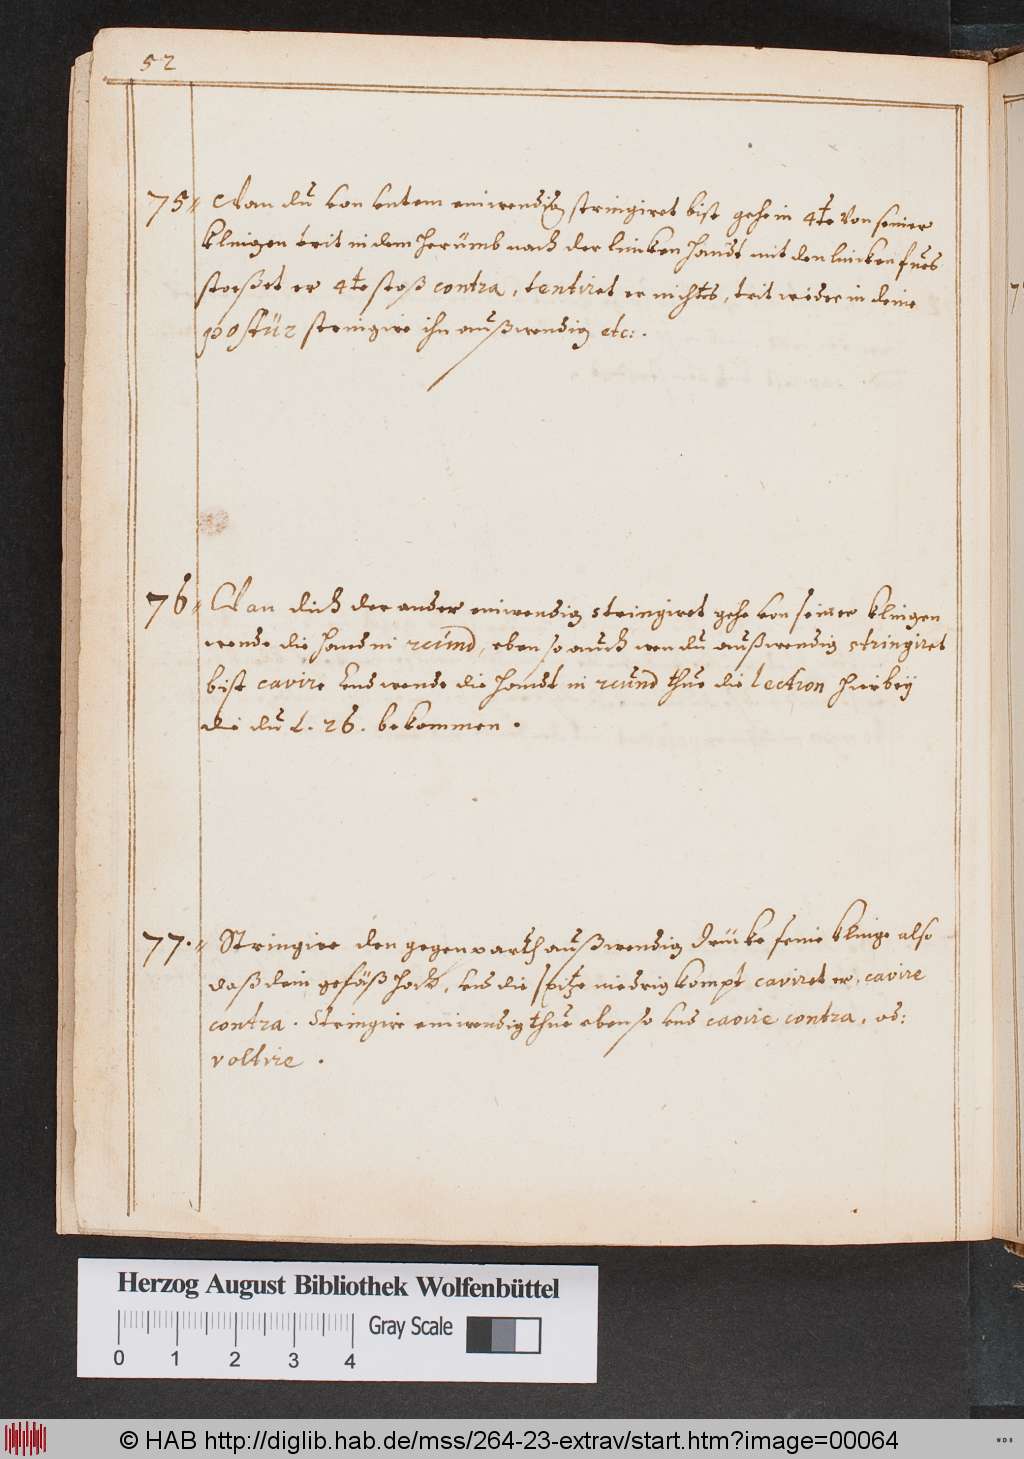 52
75 Wan du von untem einwendig stringiret bist gehe in 4te von seiner
klingen trit in dem herümb nach der lincken handt mit den lincken fues
stoeßet er 4te stoß contra, tentiret er nichts, trit wider in deine
postür stringire ihn außwendig etc:.
76 Wan dich der ander einwendig stringiret gehe von seiner klingen
wende die hand in rŭnd, eben so auch wen du außwendig stringiret
bist cavire und wende die handt in rund thue die lection hierbeÿ
die du L. 26. bekommen.
77. Stringire den gegenparth außwendig drücke seine klinge also
daß dein gefäß hoch, und die spitze niedrig kompt caviret er, cavire
contra. Stringire einwendig thue eben so und cavire contra, od:
voltire.
Herzog August Bibliothek Wolfenbüttel
Gray Scale
0 1 2 3 4
© HAB http://diglib.hab.de/mss/264-23-extrav/start.htm?image=00064